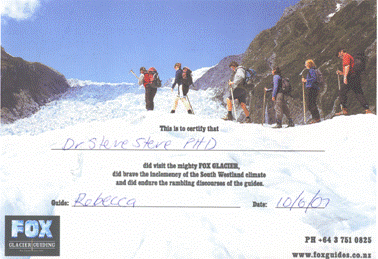 This is to certify that
Dr Steve Steve PHD
did visit the mighty FOX GLACIER,
did brave the inclemency of the South Westland climate
and did endure the rambling discourses of the guides.
Guide: Rebecca Date: 10/6/07
FOX
GLACIER GUIDING
PH +64 3 751 0825
www.foxguides.co.nz